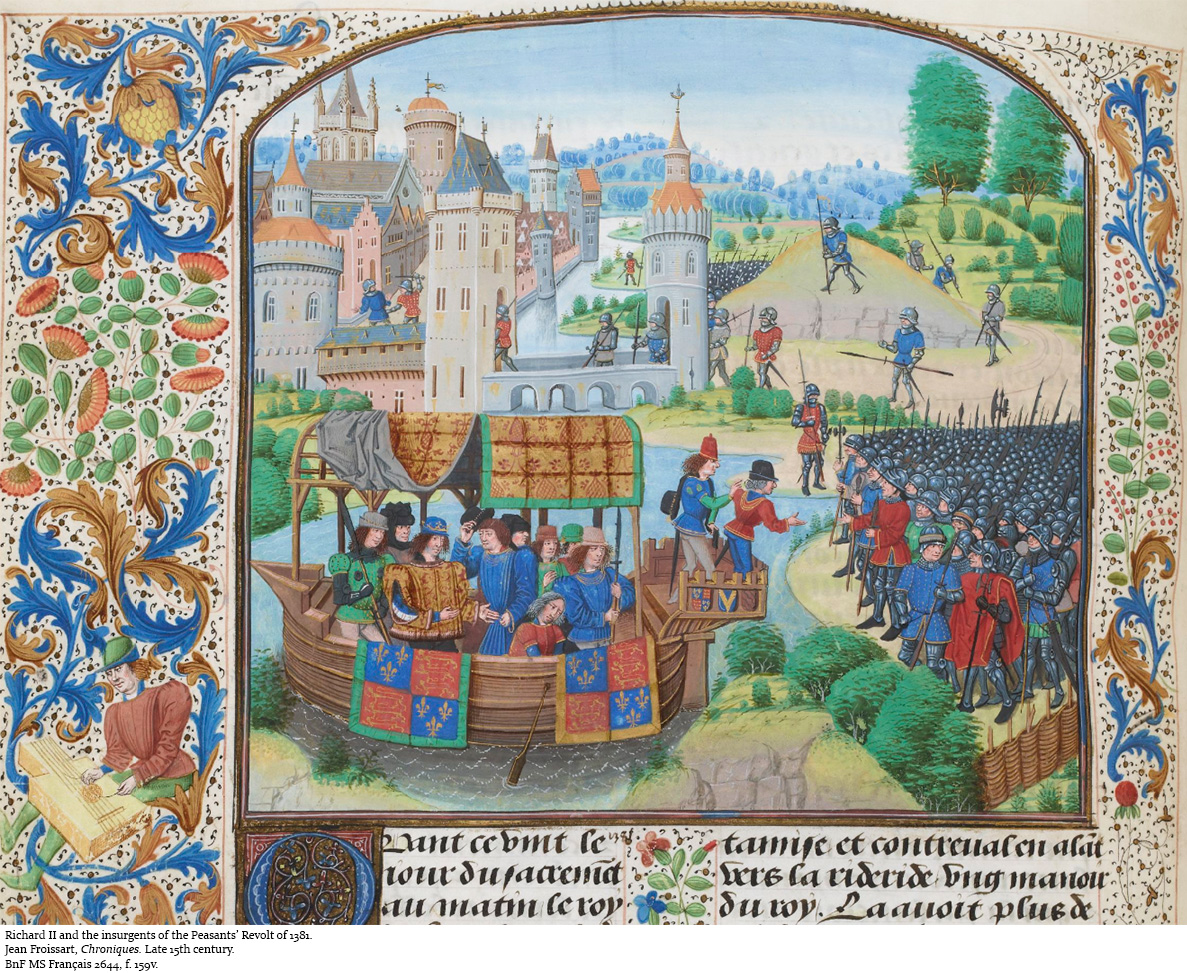 Quant ce vint le
iour du sacremēt
au matin le roy
tamise et contreual en alāt
vers la rideride vng manoir
du roy. La auoit plus de
Richard II and the insurgents of the Peasants' Revolt of 1381.
Jean Froissart, Chroniques. Late 15th century.
BnF MS Français 2644, f. 159v.